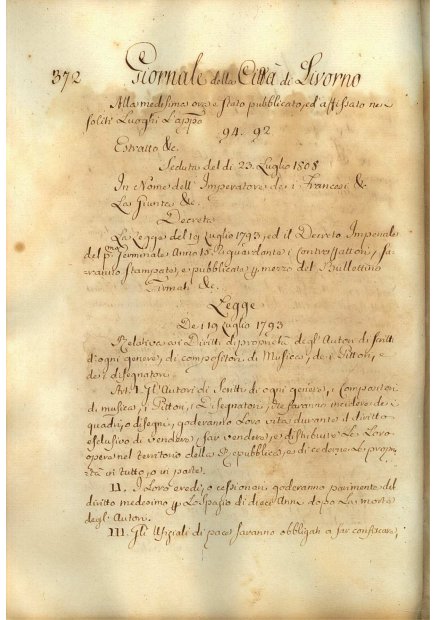 372 Giornale della Città di Livorno
Alla medesima ora è stato pubblicato, ed affissato nei
soliti Luoghi L'appo
94. 92
Estratto &c.
Seduta del di 23. Luglio 1808
In Nome dell'Imperatore de i Francesi &c.
La Giunta &c.
Decreta
La Legge del 19 Luglio 1793, ed il Decreto Imperiale
del pmo Germinale Anno 13. Riguardante i Contraffattori, sa-
ranno Stampate, e pubblicate p mezzo del Bullettino
Firmat. &c.
Legge
De 19 Luglio 1793
Relativa ai Diritti di proprietà degl'Autori di scritti
d'ogni genere, di compositori di Musica, de i Pittori, e
de i disegnatori
Art. I. Gl'Autori di Scritti di ogni genere, i Compositori
di musica, i Pittori, i Disegnatori, che faranno incidere de i
quadri, o disegni, goderanno Loro vita durante il diritto
esclusivo di vendere, far vendere, e distribuire Le Loro
opere nel territorio della Repubblica, e di cederne La propie-
tà in tutto, o in parte.
II. I Loro eredi, o cessionari goderanno parimente del
diritto medesimo p Lo spazio di dieci Anni dopo La morte
degl'Autori.
III. Gli Ufiziali di pace saranno obbligati a far confiscare,